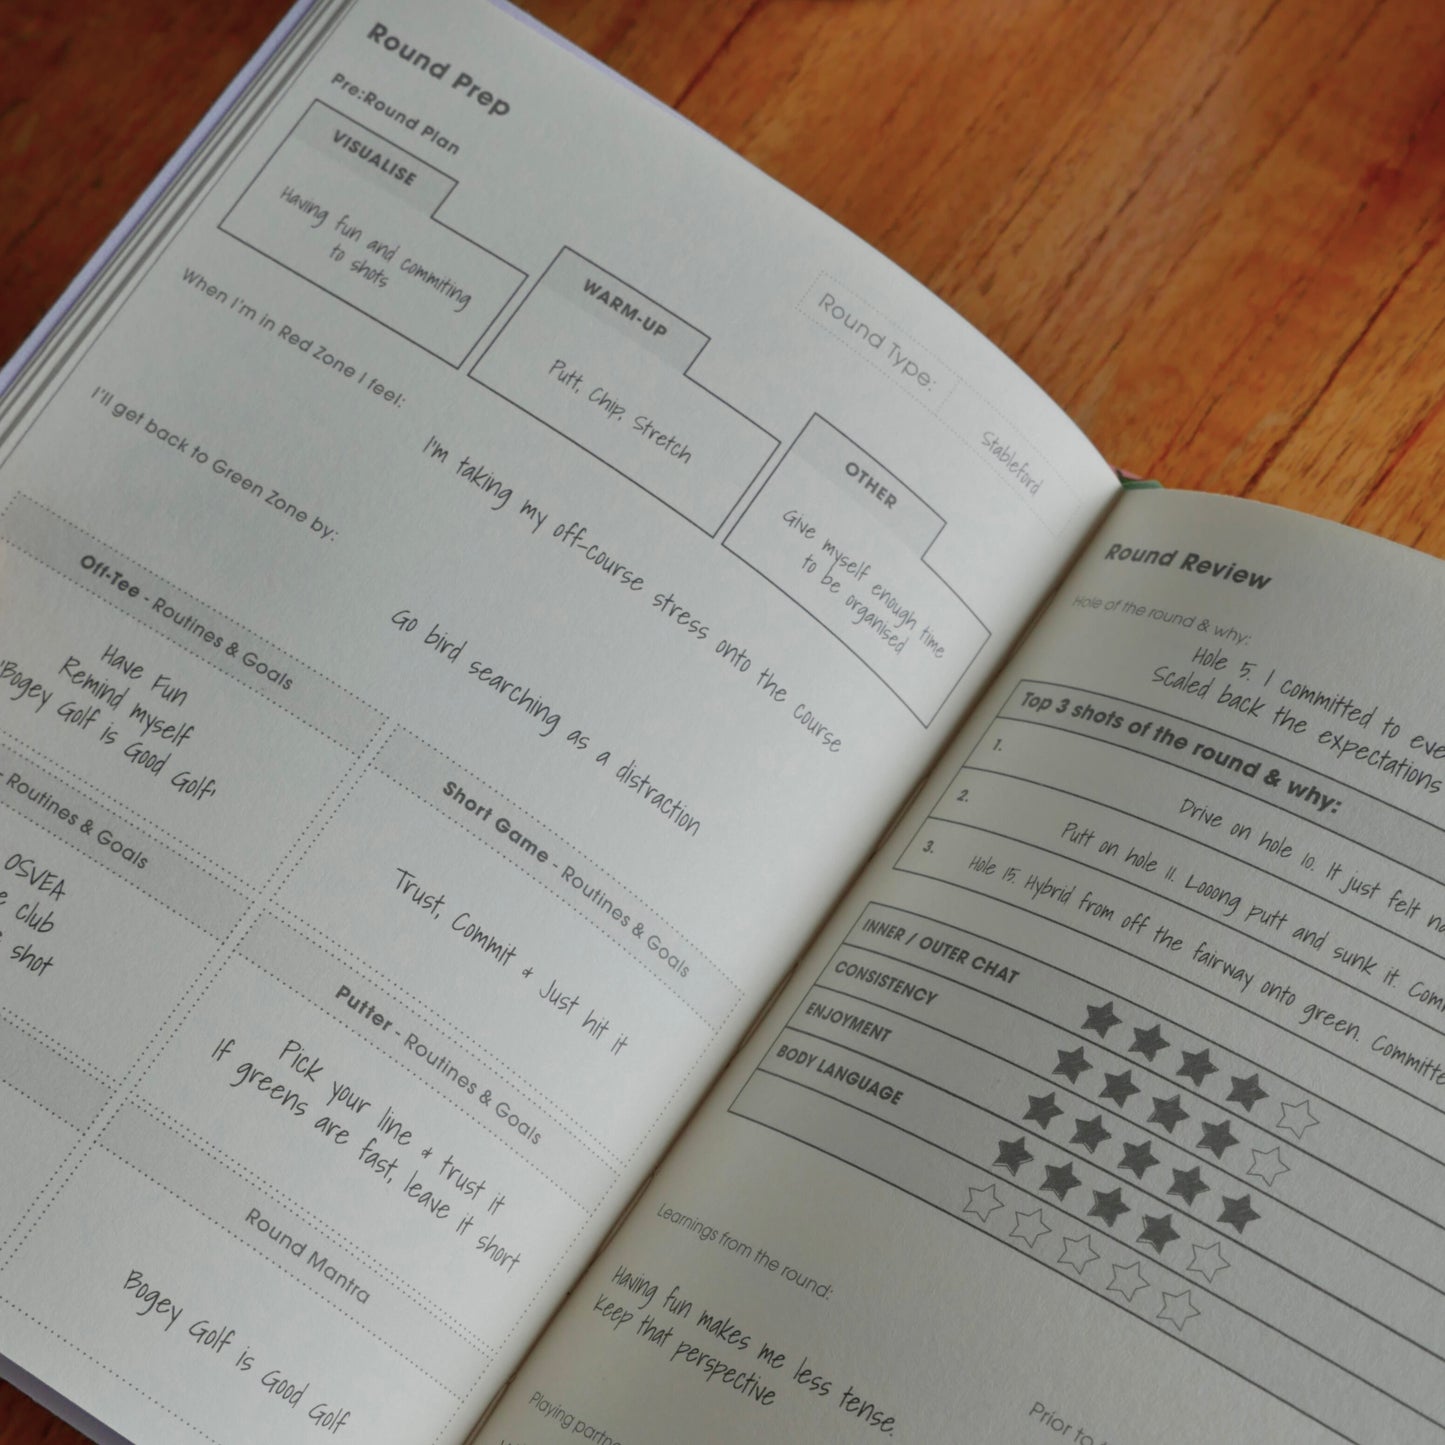 Round Prep
Pre:Round Plan
VISUALISE
Having fun and commiting
to shots
WARM-UP
Putt, Chip, Stretch
OTHER
Give myself enough time
to be organised
Round Type:
Stableford
When I'm in Red Zone I feel:
I'm taking my off-course stress onto the course
I'll get back to Green Zone by:
Go bird searching as a distraction
Off-Tee - Routines & Goals
Have Fun
Remind myself
'Bogey Golf is Good Golf'
Short Game - Routines & Goals
Trust, Commit & Just hit it
- Routines & Goals
OSVEA
club
shot
Putter - Routines & Goals
Pick your line & trust it
If greens are fast, leave it short
Round Mantra
Bogey Golf is Good Golf
Round Review
Hole of the round & why:
Hole 5. I committed to
Scaled back the expectations
Top 3 shots of the round & why:
1.
Drive on hole 10. It just felt
2.
Putt on hole 11. Looong putt and sunk it.
3.
Hole 15. Hybrid from off the fairway onto green.
INNER / OUTER CHAT
CONSISTENCY
ENJOYMENT
BODY LANGUAGE
Learnings from the round:
Having fun makes me less tense.
Keep that perspective
Playing
Prior to